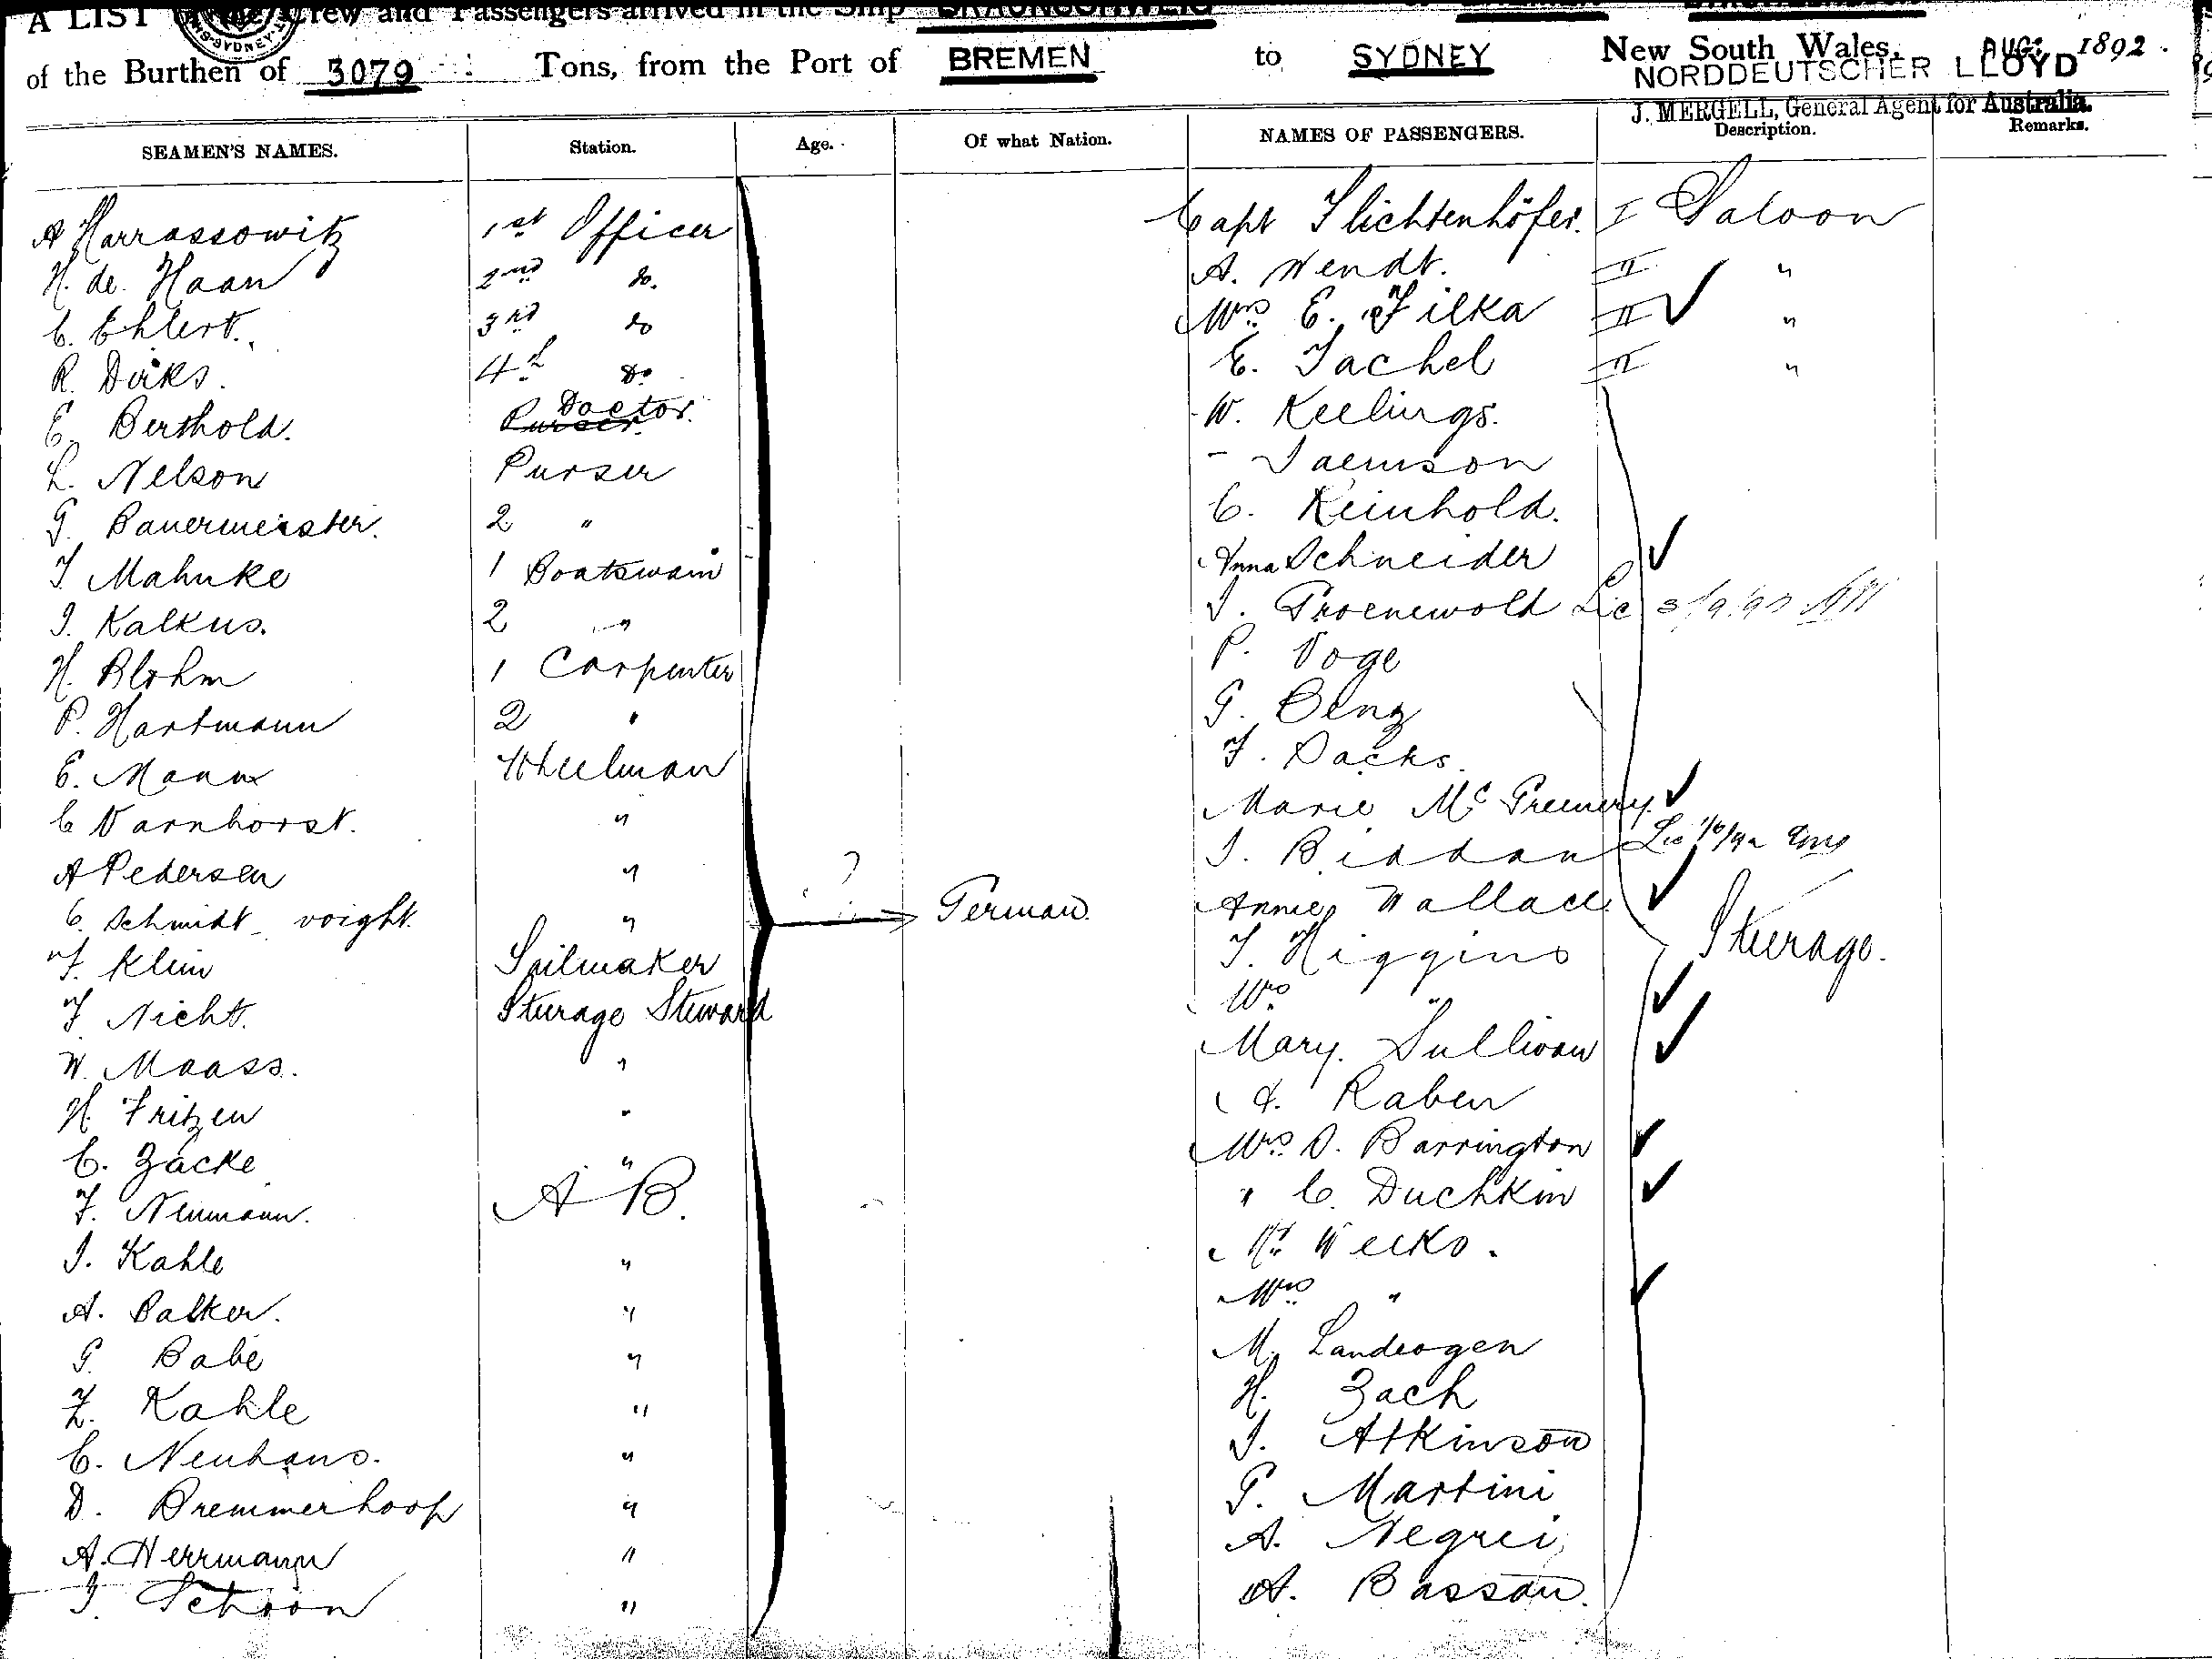 A LIST of the Crew and Passengers arrived in the Ship BRAUNSCHWEIG
of the Burthen of 3079 Tons, from the Port of BREMEN to SYDNEY New South Wales, AUG: 1892.
NORDDEUTSCHER LLOYD
J. MERGELL, General Agent for Australia.
SEAMEN'S NAMES. Station. Age. Of what Nation. NAMES OF PASSENGERS. Description. Remarks.
A Harrassowitz 1st Officer Capt Flichtenhöfer. I Saloon
H. de. Haan 2nd do. A. Wendt. II "
C. Ehlert. 3rd do Mrs E. Filka II "
R. Dirks. 4th Do E. Tachel II "
E. Berthold. Purser. Doctor. W. Keelings.
L. Nelson Purser - Jaemson
G. Bauermeister. 2 " C. Reinhold.
J Mahnke 1 Boatswain Anna Schneider
J. Kalkus. 2 " J. Groenewold Lic
H. Blohm 1 Carpenter P. Voge
P. Hartmann 2 " G. Benz
E. Mann Wheelman F. Dacks.
C Varnhorst. " Marie Mc Greenery.
A Pedersen " J. Biddan Lic
C. Schmidt - voight. " German. Annie Wallace
F. Klein Sailmaker J. Higgins Steerage.
F Nicht. Steerage Steward Mrs "
W. Maass. " Mary. Sullivan
H. Fritzen " A. Raben
C. Zacke " Mrs D. Barrington
F. Neumann. A B. " C. Duchkin
J. Kahle " Mr Weeks.
A. Balker. " Mrs "
G. Babe " M. Landeogen
Z. Kahle " H. Zach
C. Neuhaus. " J. Atkinson
D. Bremmerhoop " G. Martini
A. Herrmann " A. Negrei
J. Schoon " A. Bassan.